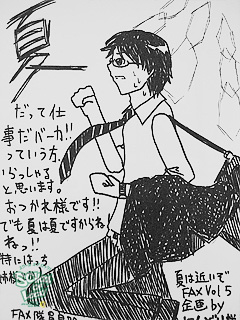 夏
だって仕
事だバーカ!!
っていう方、
いらっしゃる
と思います。
おつかれ様です!!
でも夏は夏ですからね
ねっ!!
特にはっち
夏は近いで
FAX Vol 5
企画 by
FAX 隊員